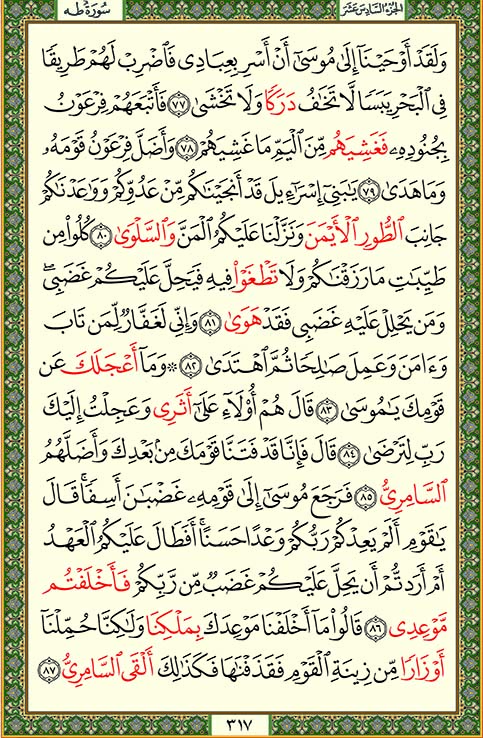 الجزء السادس عشر
سورة طه
وَلَقَدْ أَوْحَيْنَآ إِلَىٰ مُوسَىٰٓ أَنْ أَسْرِ بِعِبَادِى فَٱضْرِبْ لَهُمْ طَرِيقًا
فِى ٱلْبَحْرِ يَبَسًا لَّا تَخَٰفُ دَرَكًا وَلَا تَخْشَىٰ ٧٧ فَأَتْبَعَهُمْ فِرْعَوْنُ
بِجُنُودِهِۦ فَغَشِيَهُم مِّنَ ٱلْيَمِّ مَا غَشِيَهُمْ ٧٨ وَأَضَلَّ فِرْعَوْنُ قَوْمَهُۥ
وَمَا هَدَىٰ ٧٩ يَٰبَنِىٓ إِسْرَٰٓءِيلَ قَدْ أَنجَيْنَٰكُم مِّنْ عَدُوِّكُمْ وَوَٰعَدْنَٰكُمْ
جَانِبَ ٱلطُّورِ ٱلْأَيْمَنَ وَنَزَّلْنَا عَلَيْكُمُ ٱلْمَنَّ وَٱلسَّلْوَىٰ ٨٠ كُلُوا۟ مِن
طَيِّبَٰتِ مَا رَزَقْنَٰكُمْ وَلَا تَطْغَوْا۟ فِيهِ فَيَحِلَّ عَلَيْكُمْ غَضَبِى ۖ
وَمَن يَحْلِلْ عَلَيْهِ غَضَبِى فَقَدْ هَوَىٰ ٨١ وَإِنِّى لَغَفَّارٌ لِّمَن تَابَ
وَءَامَنَ وَعَمِلَ صَٰلِحًا ثُمَّ ٱهْتَدَىٰ ٨٢ ۞ وَمَآ أَعْجَلَكَ عَن
قَوْمِكَ يَٰمُوسَىٰ ٨٣ قَالَ هُمْ أُو۟لَآءِ عَلَىٰٓ أَثَرِى وَعَجِلْتُ إِلَيْكَ
رَبِّ لِتَرْضَىٰ ٨٤ قَالَ فَإِنَّا قَدْ فَتَنَّا قَوْمَكَ مِنۢ بَعْدِكَ وَأَضَلَّهُمُ
ٱلسَّامِرِىُّ ٨٥ فَرَجَعَ مُوسَىٰٓ إِلَىٰ قَوْمِهِۦ غَضْبَٰنَ أَسِفًا ۚ قَالَ
يَٰقَوْمِ أَلَمْ يَعِدْكُمْ رَبُّكُمْ وَعْدًا حَسَنًا ۚ أَفَطَالَ عَلَيْكُمُ ٱلْعَهْدُ
أَمْ أَرَدتُّمْ أَن يَحِلَّ عَلَيْكُمْ غَضَبٌ مِّن رَّبِّكُمْ فَأَخْلَفْتُم
مَّوْعِدِى ٨٦ قَالُوا۟ مَآ أَخْلَفْنَا مَوْعِدَكَ بِمَلْكِنَا وَلَٰكِنَّا حُمِّلْنَآ
أَوْزَارًا مِّن زِينَةِ ٱلْقَوْمِ فَقَذَفْنَٰهَا فَكَذَٰلِكَ أَلْقَى ٱلسَّامِرِىُّ ٨٧
٣١٧